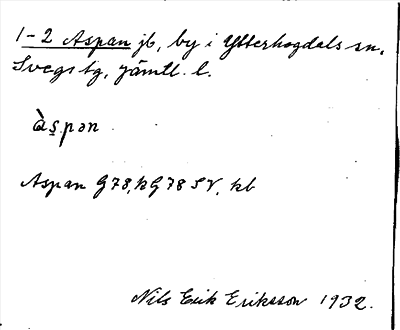 1-2 Aspan jb, by i Ytterhogdals sn,
Svegs tg, Jämtl. l.
àspən
Aspan G78, kG78 SV, kb
Nils Erik Eriksson 1932.